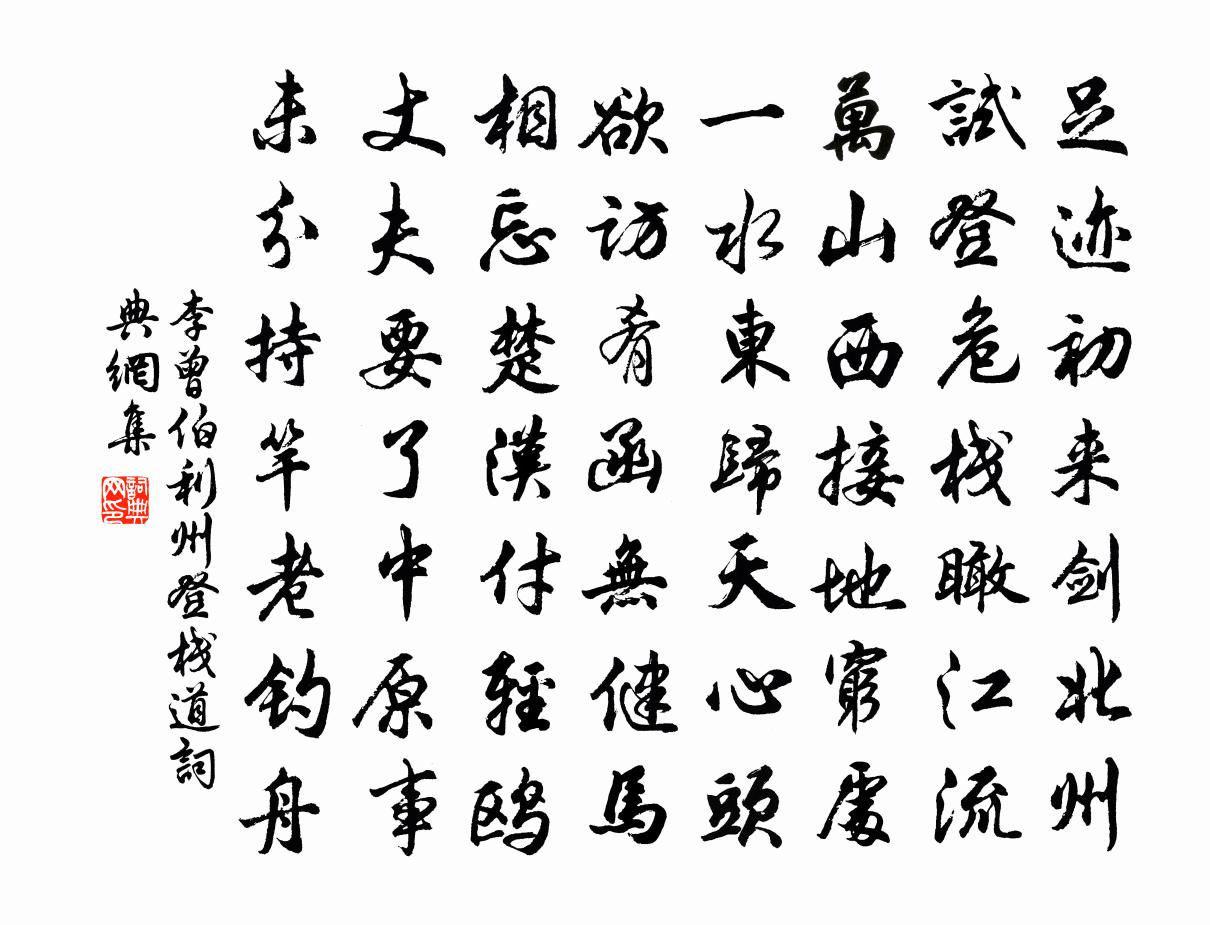 足迹初来剑北州
試登危栈瞰江流
萬山西接地窮處
一水東歸天心頭
欲訪肴函無健馬
相忘楚漢付輕鸥
丈夫要了中原事
未分持竿老钓舟
李曾伯利州登栈道詞
典網集
詞典网印